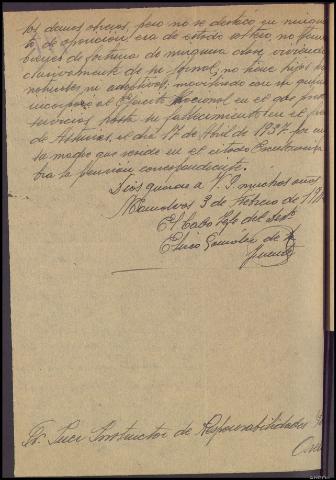 los demas obreros, pero no se destacó en ningun
de oposición era de estado soltero, no
bienes de fortuna de ninguna clase, viviendo
clusivamente de su jornal, no tiene hijos
naturales, ni adoptivos, movilizado con su quinta
incorporó al Ejército Nacional en el que
servicios hasta su fallecimiento en el
de Asturias, el dia 17 de Abril de 1937. por
su madre que reside en el citado
bra la pensión correspondiente.
Dios guarde a V. S. muchos años
3 de Febrero de
El Cabo Jefe del
Sr. Juez Instructor de Responsabilidades